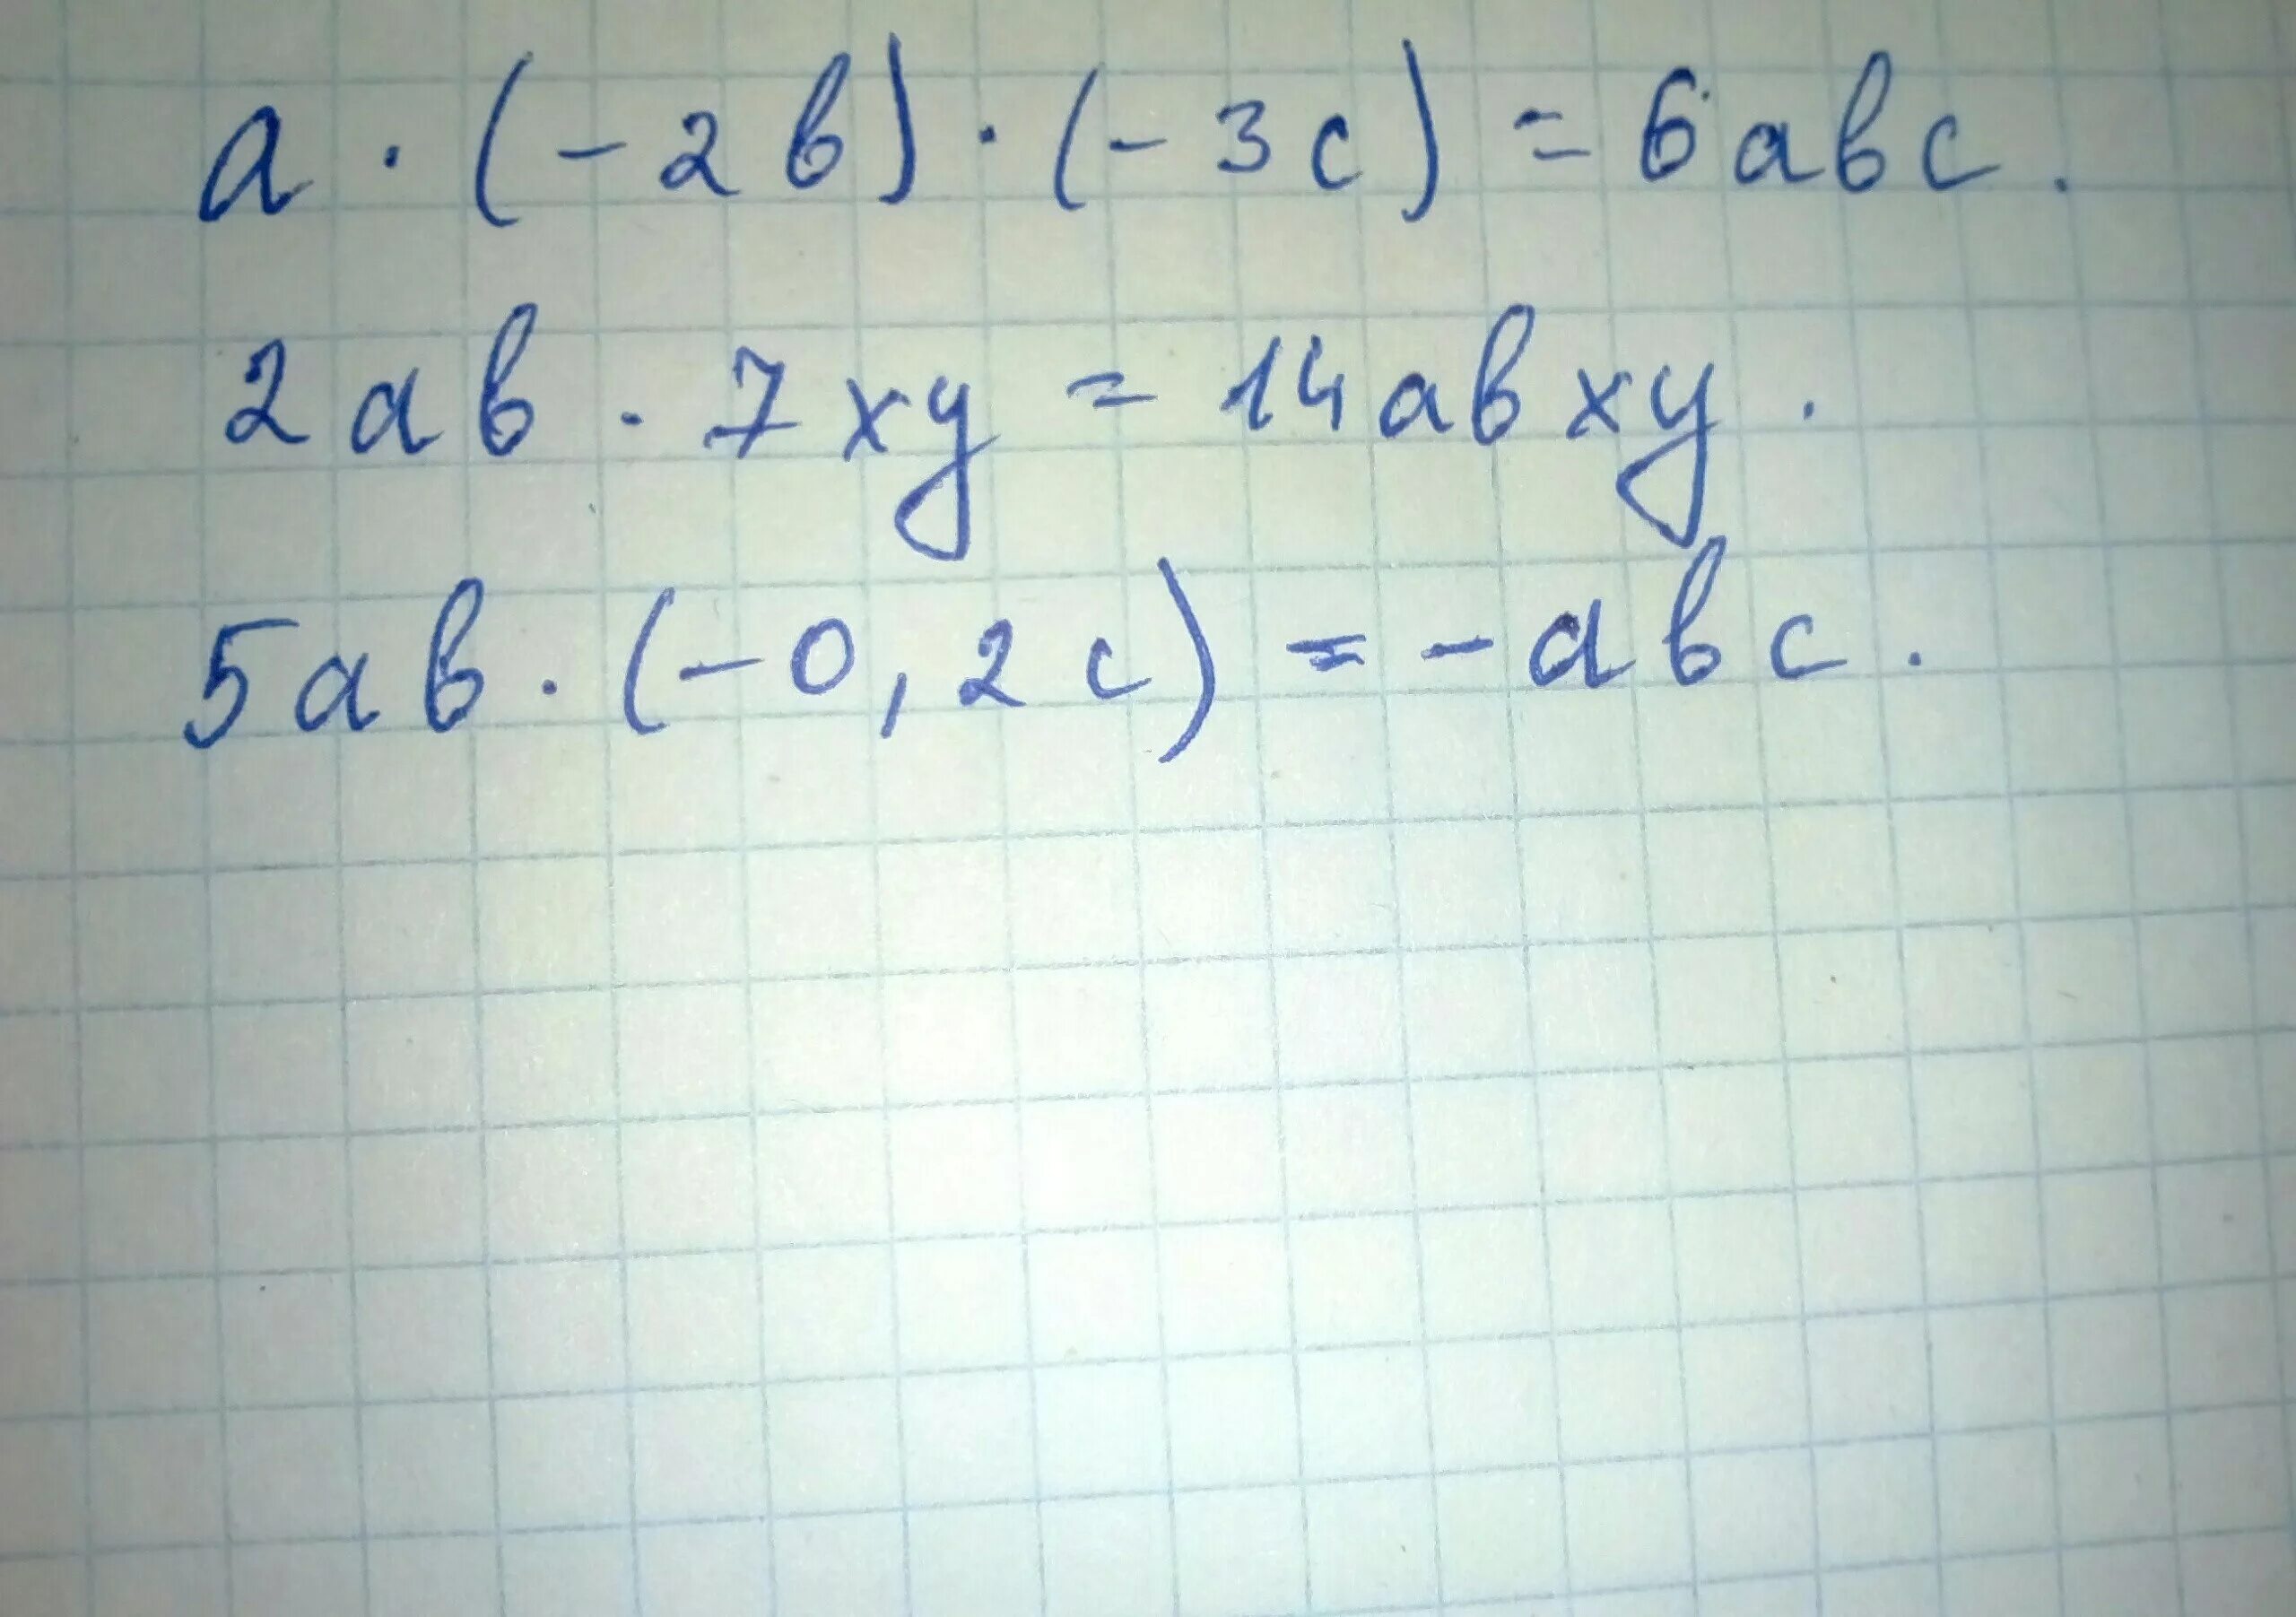 a · (-2b) · (-3c) = 6abc.
2ab · 7xy = 14abxy.
5ab · (-0,2c) = -abc.